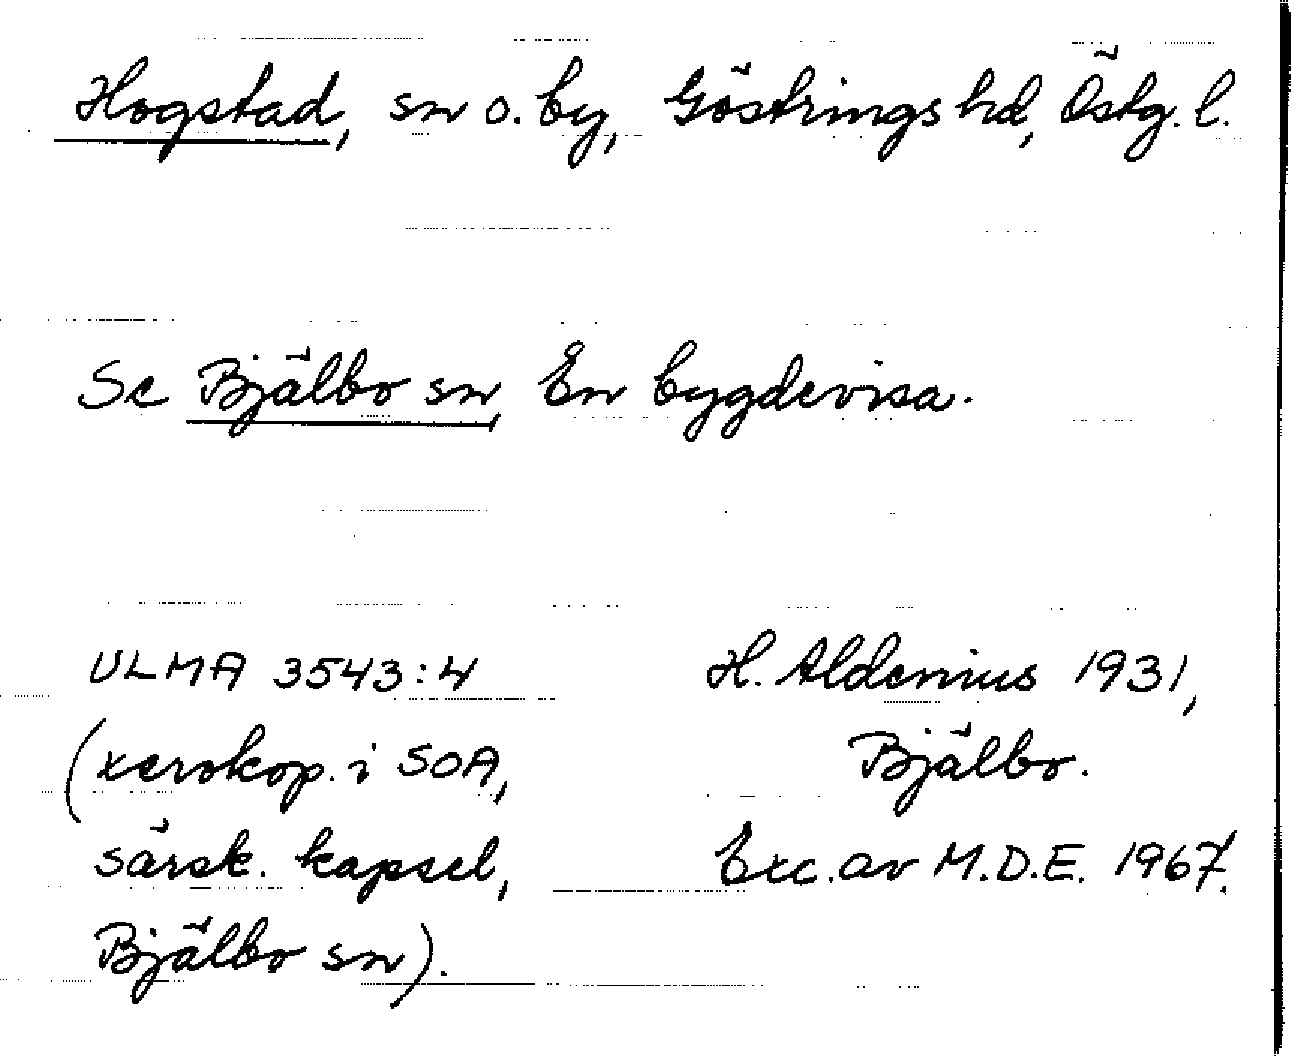 Hogstad, sn o. by, Göstrings hd, Östg. l.
Se Bjälbo sn, En bygdevisa.
ULMA 3543:4
(xerokop. i SOA,
särsk. kapsel,
Bjälbo sn).
H. Aldenius 1931,
Bjälbo.
Exc. av M.D.E. 1967.